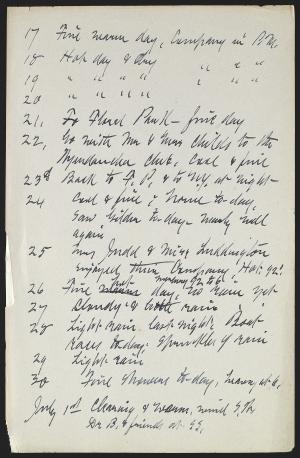 17 Fine warm day, Company in P.M.
18 Hot day & dry " " "
19 " " " " " " "
20 " " " "
21, To Floral Park - fine day
22, Go with Mr & Mrs Childs to the
Club, Cool & fine
23d Back to F. P. & to N.Y. at night -
24 Cool & fine; home to-day,
Saw Gilder to-day - nearly well
again
25 Mrs Judd & Miss Luddington
enjoyed their Company, Hot: 92°
26 Fine hot day, no rain yet
27 Cloudy & little rain
28 Light rain last night, Boat
race to-day - sprinkles of rain
29 Light rain
30 Fine showers to-day, heavy at 6,
July 1st Clearing & warm, wind
Dr B, & friends at